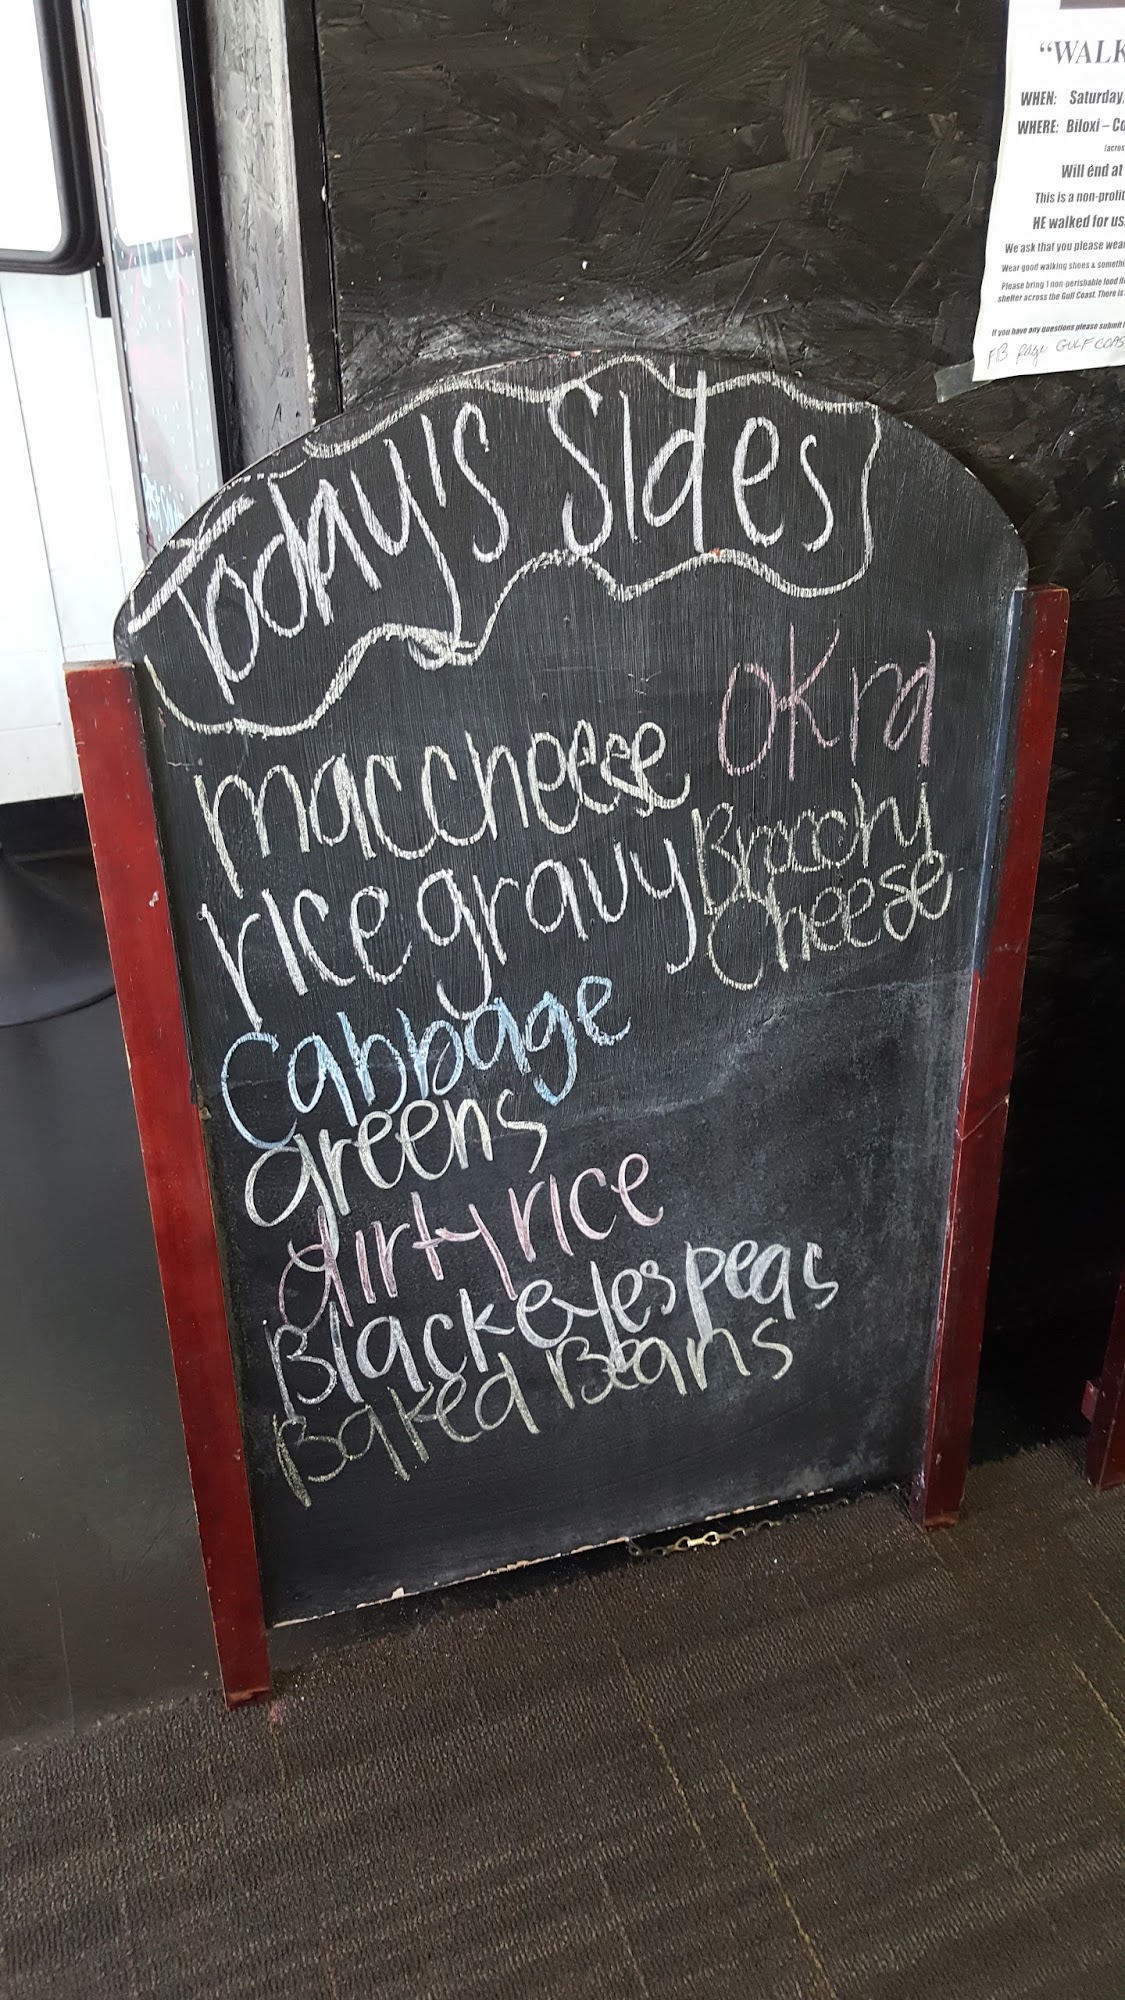 Today's Sides
maccheese
rice gravy
Cabbage
greens
dirty rice
Blackeyes peas
Baked Beans
OKra
Brocchy
Cheese
"WALK
WHEN: Saturday,
WHERE: Biloxi – Co
(acros
Will end at
This is a non-profit
HE walked for us.
We ask that you please wear
Wear good walking shoes & somethi
Please bring 1 non-perishable food it
shelter across the Gulf Coast. There is
If you have any questions please submit t
FB page GULF COAS